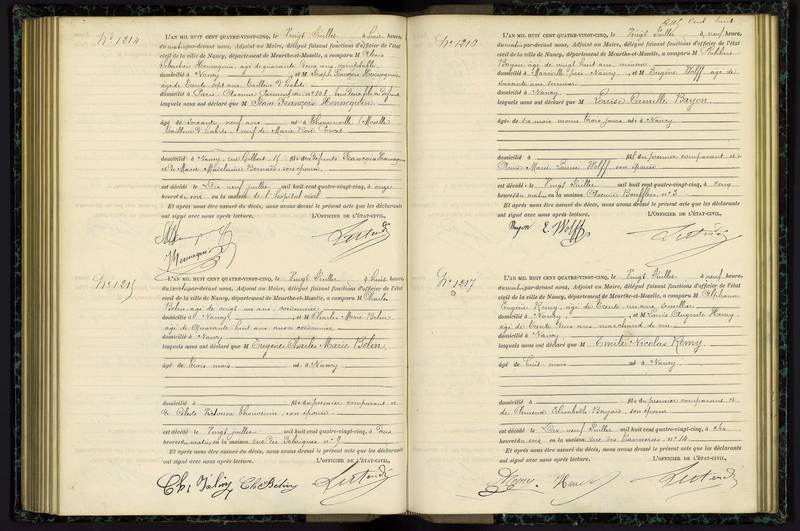 N° 1214
L'AN MIL HUIT CENT QUATRE-VINGT-CINQ, le Vingt Juillet à huit heures,
du matin par-devant nous, Adjoint au Maire, délégué faisant fonctions d'officier de l'état
civil de la ville de Nancy, département de Meurthe-et-Moselle, a comparu M
Hennequin, âgé de quarante deux ans, comptable,
domicilié à Nancy et M Joseph François Hennequin
âgé de trente sept ans, tailleur d'habits
domicilié à Paris n° 108,
lesquels nous ont déclaré que M Jean François Hennequin
âgé de soixante neuf ans né à (Moselle)
tailleur d'habits, veuf de Marie Rose
domicilié à Nancy, rue Gilbert 15 fils des défunts François Hennequin
et de Marie Madeleine Bernard, son épouse
est décédé le Dix neuf juillet mil huit cent quatre-vingt-cinq, à onze
heures du soir en la maison de l'hôpital civil
Et après nous être assuré du décès, nous avons dressé le présent acte que les déclarants
ont signé avec nous après lecture. L'OFFICIER DE L'ÉTAT-CIVIL,
Hennequin
N° 1215
L'AN MIL HUIT CENT QUATRE-VINGT-CINQ, le Vingt Juillet à huit heures,
du matin par-devant nous, Adjoint au Maire, délégué faisant fonctions d'officier de l'état
civil de la ville de Nancy, département de Meurthe-et-Moselle, a comparu M Charles
Belin, âgé de vingt un ans, cordonnier
domicilié à Nancy et M Charles Marie Belin
âgé de Quarante huit ans, aussi cordonnier
domicilié à Nancy
lesquels nous ont déclaré que M Eugène Charles Marie Belin
âgé de trois mois né à Nancy
domicilié à fils du premier comparant et
de Céleste Victorine Chauvenin, son épouse
est décédé le Vingt juillet mil huit cent quatre-vingt-cinq, à trois
heures du matin en la maison rue des Fabriques n° 9
Et après nous être assuré du décès, nous avons dressé le présent acte que les déclarants
ont signé avec nous après lecture. L'OFFICIER DE L'ÉTAT-CIVIL,
Ch Belin
N° 1216
L'AN MIL HUIT CENT QUATRE-VINGT-CINQ, le Vingt Juillet à neuf heures,
du matin par-devant nous, Adjoint au Maire, délégué faisant fonctions d'officier de l'état
civil de la ville de Nancy, département de Meurthe-et-Moselle, a comparu M
Bayon âgé de vingt huit ans, mineur
domicilié à Maxéville près Nancy, et M Eugène Wolff âgé de
soixante ans
domicilié à Nancy
lesquels nous ont déclaré que M Louise Camille Bayon
âgée de six mois moins trois jours née à Nancy
domicilié à fille du premier comparant et de
Marie Louise Wolff son épouse
est décédée le Vingt Juillet mil huit cent quatre-vingt-cinq, à cinq
heures du matin en la maison Boufflers n° 2
Et après nous être assuré du décès, nous avons dressé le présent acte que les déclarants
ont signé avec nous après lecture. L'OFFICIER DE L'ÉTAT-CIVIL,
Bayon E. Wolff
N° 1217
L'AN MIL HUIT CENT QUATRE-VINGT-CINQ, le Vingt Juillet à neuf heures,
du matin par-devant nous, Adjoint au Maire, délégué faisant fonctions d'officier de l'état
civil de la ville de Nancy, département de Meurthe-et-Moselle, a comparu M Stéphane
Eugène Remy, âgé de trente un ans,
domicilié à Nancy, et M Louis Auguste Remy
âgé de trente deux ans marchand de vin
domicilié à Nancy
lesquels nous ont déclaré que M Emile Nicolas Remy
âgé de huit mois né à Nancy
domicilié à fils du premier comparant et
de Clémence Elisabeth son épouse
est décédé le Dix neuf Juillet mil huit cent quatre-vingt-cinq, à dix
heures du soir en la maison rue des Tanneries n° 14
Et après nous être assuré du décès, nous avons dressé le présent acte que les déclarants
ont signé avec nous après lecture. L'OFFICIER DE L'ÉTAT-CIVIL,
Remy